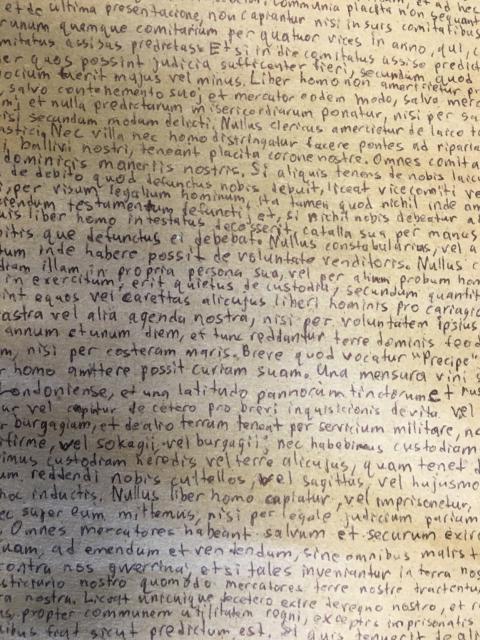 communia placita non sequantur
et de ultima presentacione, non capiantur nisi in suis comitatibus
unumquemque comitatum per quatuor vices in anno, qui, c
mitatus assisas predictas. Et si in die comitatus assise predict
er quos possint judicia sufficenter fieri, secundum quod
ocium fuerit majus vel minus. Liber homo non amercietur p
, salvo contenemento suo; et mercator eodem modo, salva merc
m; et nulla predictarum misericordiarum ponatur, nisi per sa
isi secundum modum delicti. Nullus clericus amercietur de laico t
astici. Nec villa nec homo distringatur facere pontes ad riparia
i, ballivi nostri, teneant placita corone nostre. Omnes comita
dominicis maneriis nostris. Si aliquis tenens de nobis laic
de debito quod defunctus nobis debuit, liceat vicecomiti ve
i, per visum legalium hominum, ita tamen quod nichil inde am
ciendum testamentum defuncti; et, si nichil nobis debeatur a
uis liber homo intestatus decesserit, catalla sua per manus
bitis que defunctus ei debebat. Nullus constabularius, vel a
tum inde habere possit de voluntate venditoris. Nullus c
diam illam in propria persona sua, vel per alium probum hom
in exercitum, erit quietus de custodia, secundum quantit
int equos vel carettas alicujus liberi hominis pro cariagio
astra vel alia agenda nostra, nisi per voluntatem ipsius
annum et unum diem, et tunc reddantur terre dominis feod
m, nisi per costeram maris. Breve quod vocatur "Precipe"
r homo amittere possit curiam suam. Una mensura vini s
Londoniense, et una latitudo pannorum tinctorum et rus
ur vel capiatur de cetero pro brevi inquisicionis de vita vel
r burgagium, et de alio terram teneat per servicium militare, no
ifirme, vel sokagii, vel burgagii; nec habebimus custodiam
imus custodiam heredis vel terre alicujus, quam tenet d
um reddendi nobis cultellos, vel sagittas, vel hujusmo
hoc inductis. Nullus liber homo capiatur, vel imprisonetur,
ec super eum mittemus, nisi per legale judicium parium
. Omnes mercatores habeant salvum et securum exire
quam, ad emendum et vendendum, sine omnibus malis t
contra nos gwerrina; et si tales inveniantur in terra nos
sticiario nostro quomodo mercatores terre nostre tractentur
ra nostra. Liceat unicuique decetero exire de regno nostro, et r
us, propter communem utilitatem regni, exceptis imprisonatis
ibus fiat sicut predictum est. Si quis tenuerit de ali